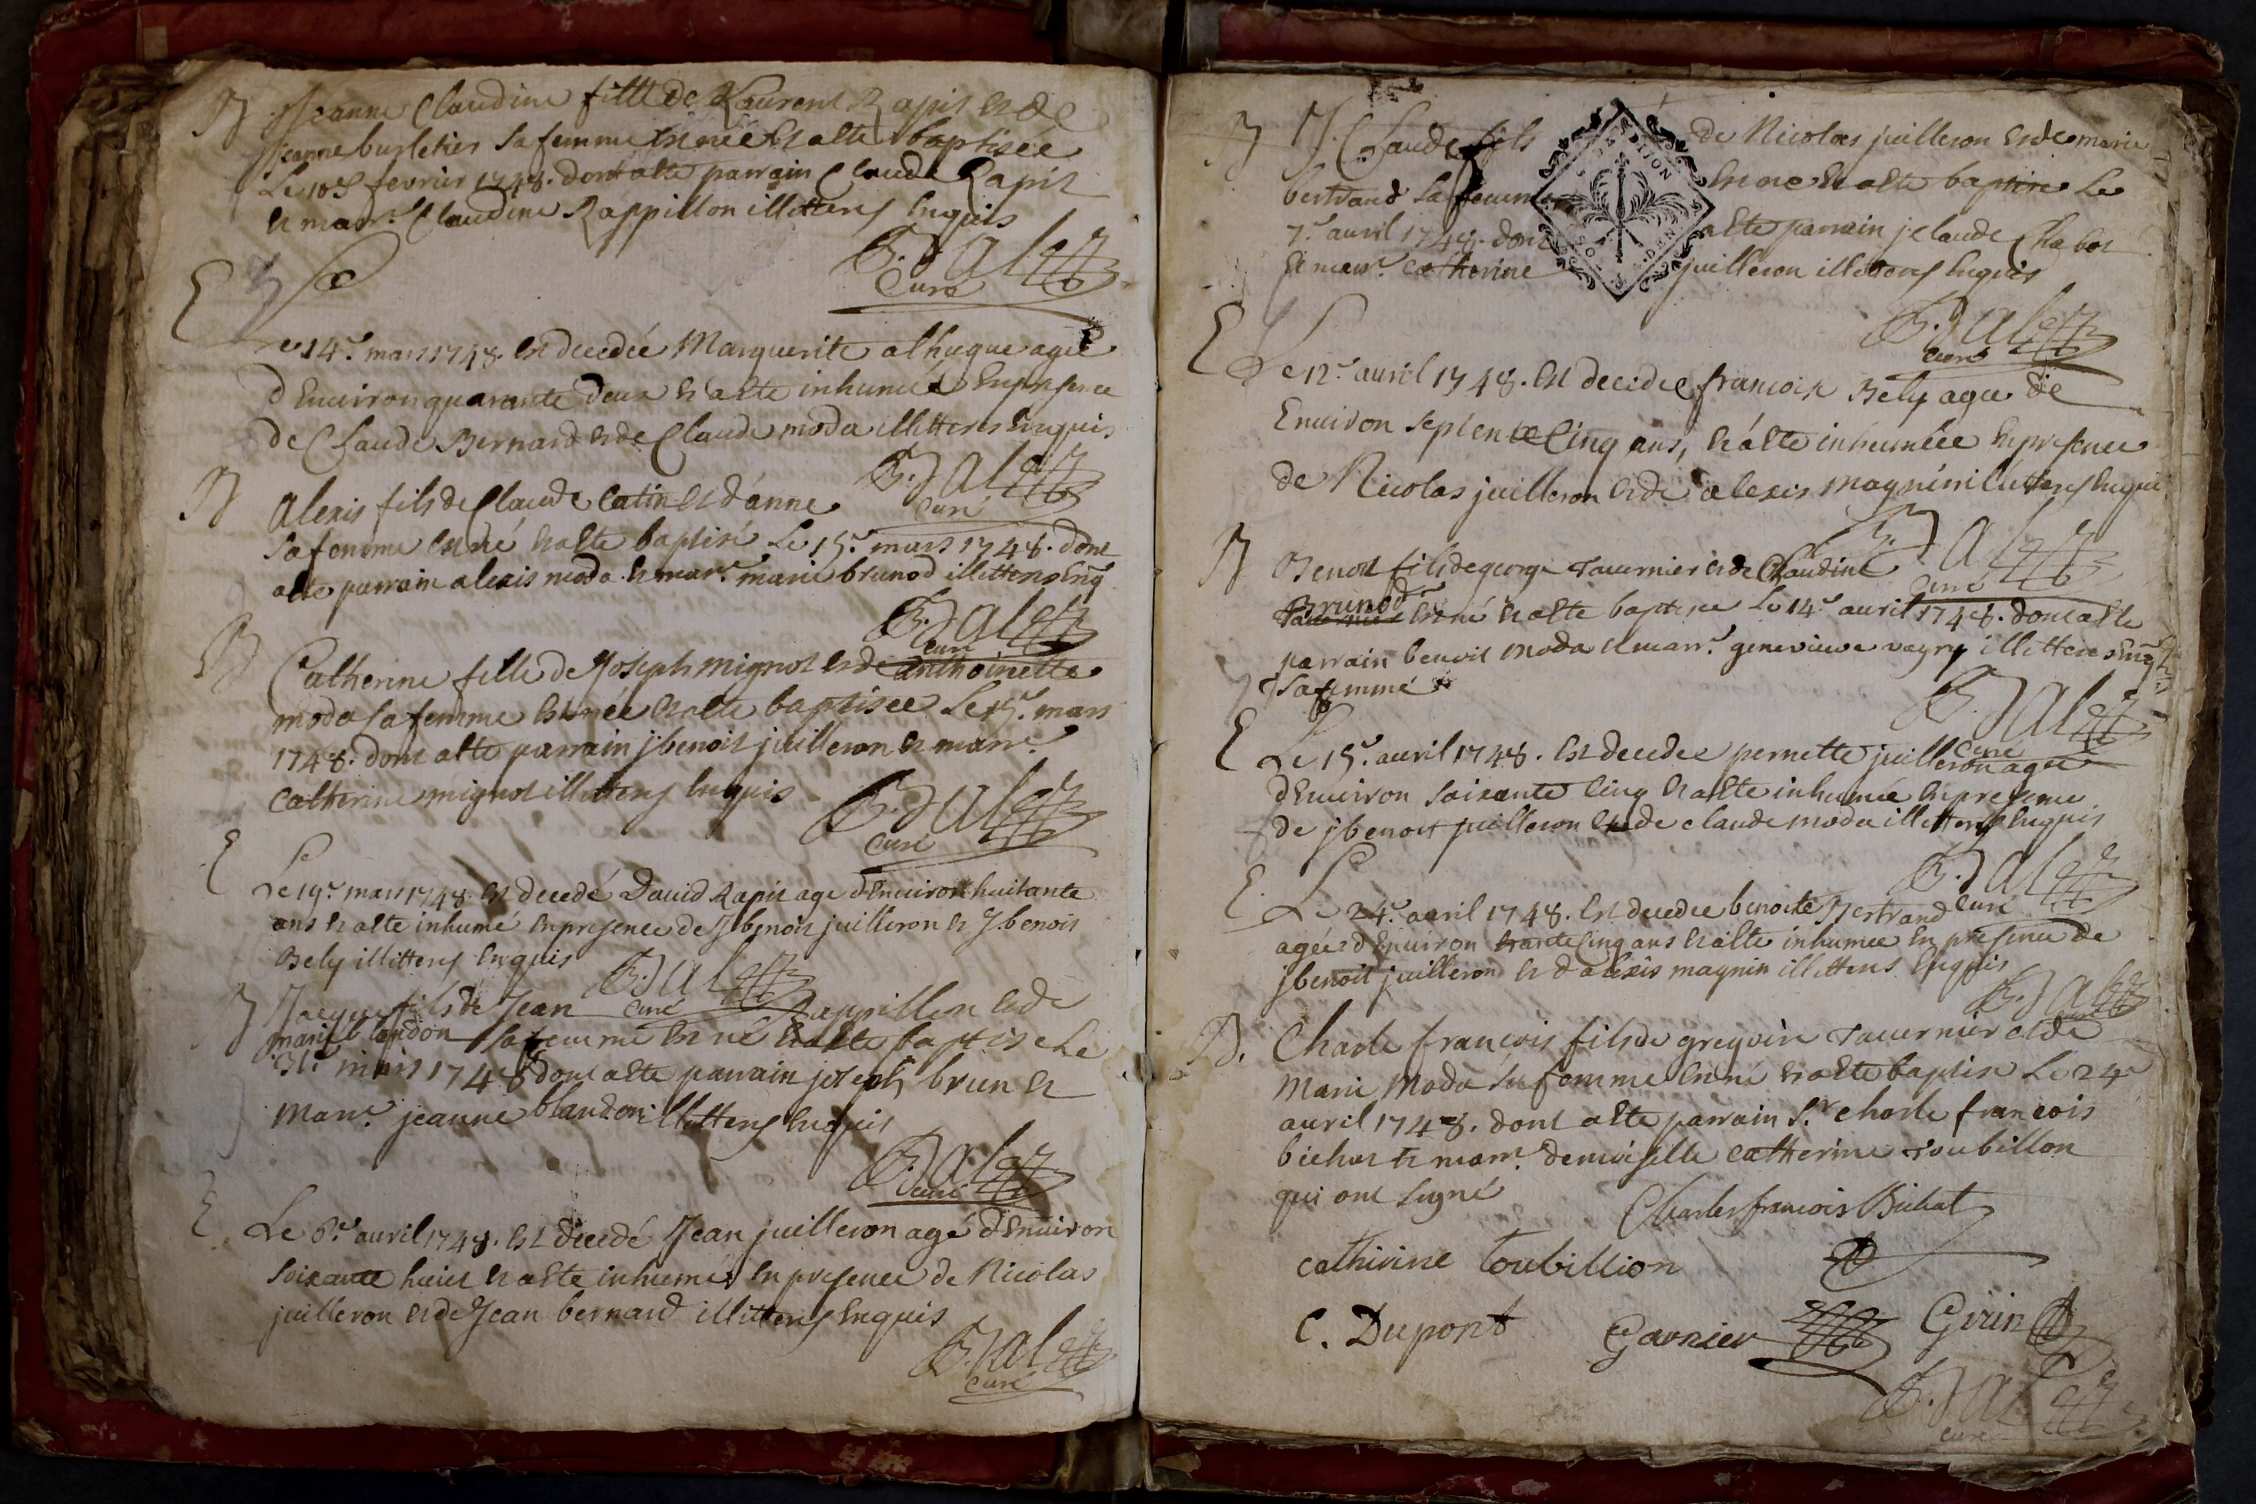 B Jeanne Claudine fille de Laurent Rapit et de
jeanne burletier sa femme est née et a été baptisée
Le 10e fevrier 1748. dont a été parrain Claude Rapit
et marr.e Claudine Rappillon illitterés Enquis
B. Jalez
Curé
E Le 14.e mars 1748. Est decedée Marguerite alhugue agée
d'Environ quarante deux et a été inhumée En presence
de Claude Bernard et de Claude moda illitterés Enquis
B. Jalez
curé
B Alexis fils de Claude Catin et d'anne
sa femme est né et a été baptisé Le 15.e mars 1748. dont
a été parrain alexis moda et marr.e marie brunod illitterés Enq
B. Jalez
curé
B Catherine fille de Joseph mignot et de anthoinette
moda sa femme est née et a été baptisée Le 15.e mars
1748. dont a été parrain jbenoit juilleron et marr.e
Catherine mignot illitterés Enquis
B. Jalez
curé
E Le 19.e mars 1748. Est decedé David Rapit agé d'Environ huitante
ans et a été inhumé En presence de J benoit juilleron et J. benoit
Bely illitterés Enquis
B. Jalez
curé
B Jacque fils de Jean Rappillon et de
marie blandon sa femme est né et a été baptisé Le
31.e mars 1748 dont a été parrain joseph brun et
Marr.e jeanne blandon illitterés Enquis
B. Jalez
curé
E Le 6.e avril 1748. Est decedé Jean juilleron agé d'Environ
soixante huict et a été inhumé En presence de Nicolas
juilleron et de Jean bernard illitterés Enquis
B. Jalez
curé
B J. Claude fils de Nicolas juilleron et de marie
bertrand sa femme est né et a été baptisé Le
7.e avril 1748. dont a été parrain j claude Chabot
Et marr.e catherine juilleron illitterés Enquis
DIJON
B. Jalez
curé
E Le 12.e avril 1748. Est decedée francoise Bely agée de
Environ septente Cinq ans, et a été inhumée En presence
de Nicolas juilleron et de alexis magnin illitterés Enquis
B. Jalez
curé
B Benoit fils de george Tavernier et de Claudine
Brunod
est né et a été baptisé Le 14.e avril 1748. dont a été
parrain benoit moda et marr.e genevieve vagny illitterés Enq
sa femme
B. Jalez
curé
E Le 15.e avril 1748. Est decedée pernette juilleron agée
d'Environ soixante Cinq et a été inhumée En presence
de jbenoit juilleron et de claude moda illitterés Enquis
B. Jalez
curé
E. Le 24.e avril 1748. Est decedée benoite Bertrand
agée d'Environ trante Cinq ans et a été inhumée En presence de
jbenoit juilleron et d'alexis magnin illitterés Enquis
B. Jalez
B. Charle françois fils de gregoire Tavernier et de
Marie Moda sa femme est né et a été baptisé Le 24e
avril 1748. dont a été parrain S.r charle francois
bichat et marr.e demoiselle catherine Toubillon
qui ont signé
Charles francois Bichat
cathirine Toubillion
C. Dupont Garnier Girin
B. Jalez
curé